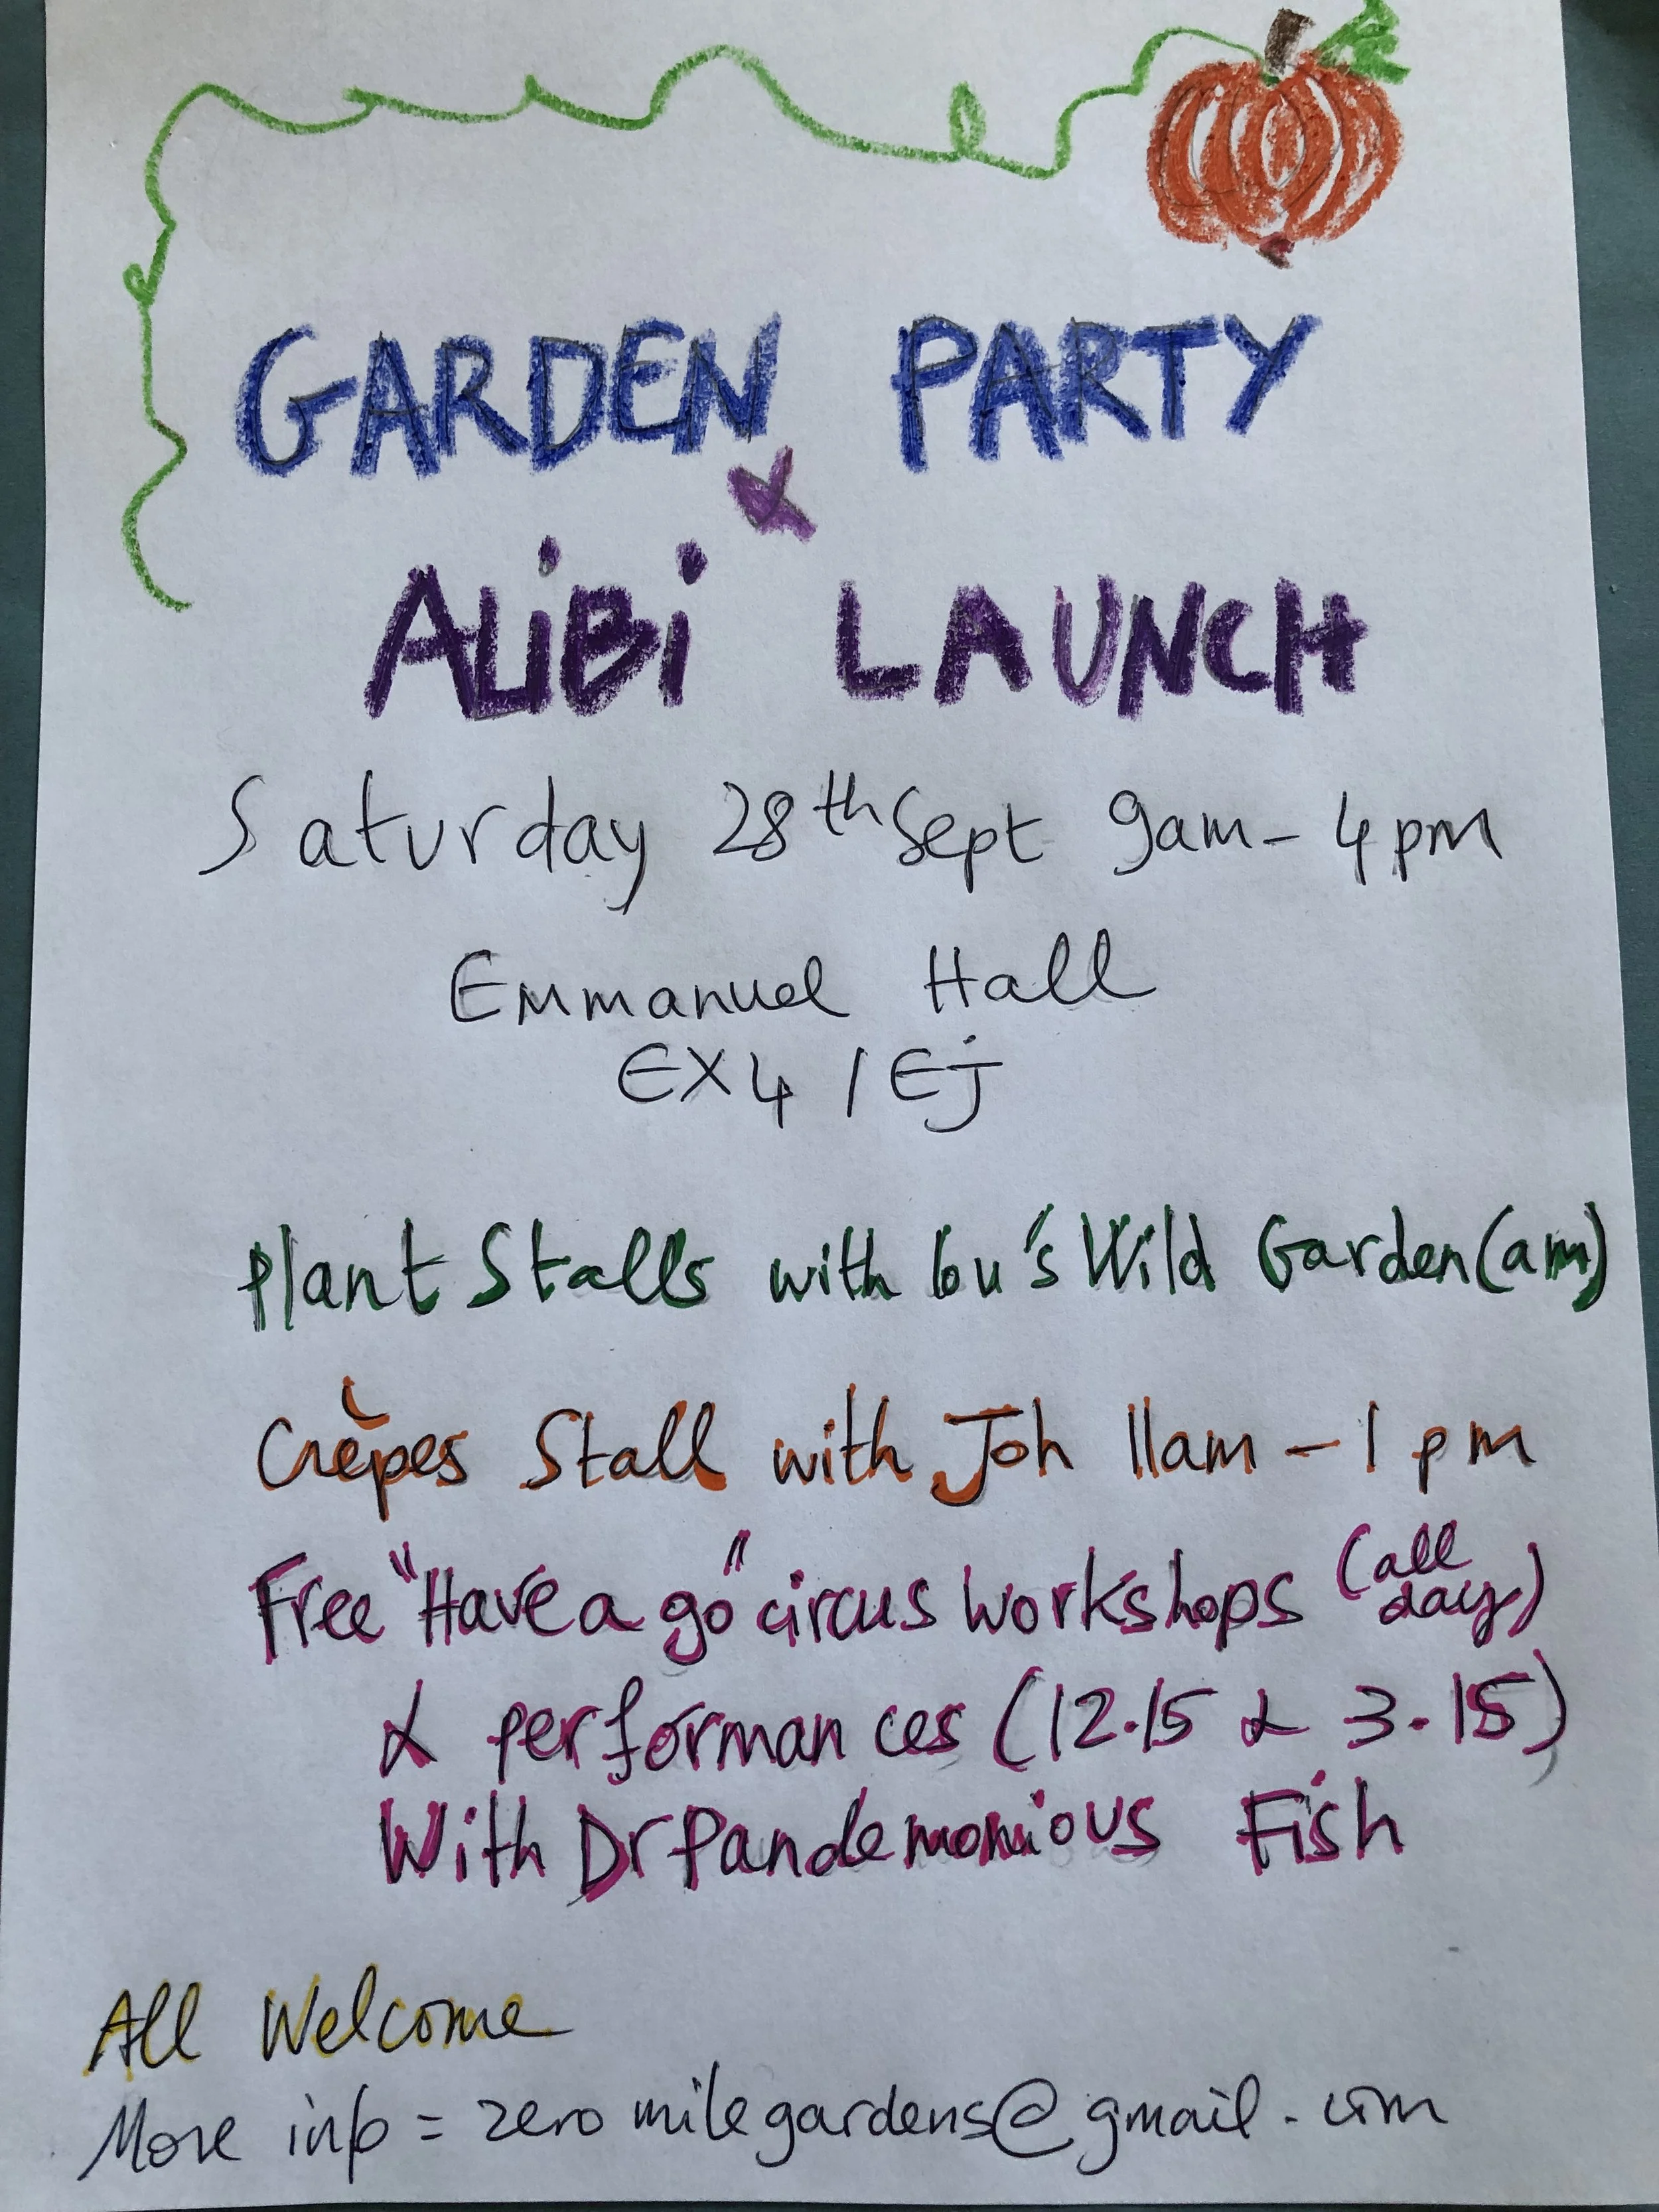 GARDEN PARTY
&
ALiBi LAUNCH
Saturday 28th Sept 9am - 4pm
Emmanuel Hall
EX4 1EJ
Plant Stalls with Lou's Wild Garden (am)
Crèpes Stall with Joh 11am - 1pm
Free "Have a go" circus workshops (all day)
& performances (12.15 & 3.15)
With Dr Pandemonious Fish
All Welcome
More info = zeromilegardens@gmail.com